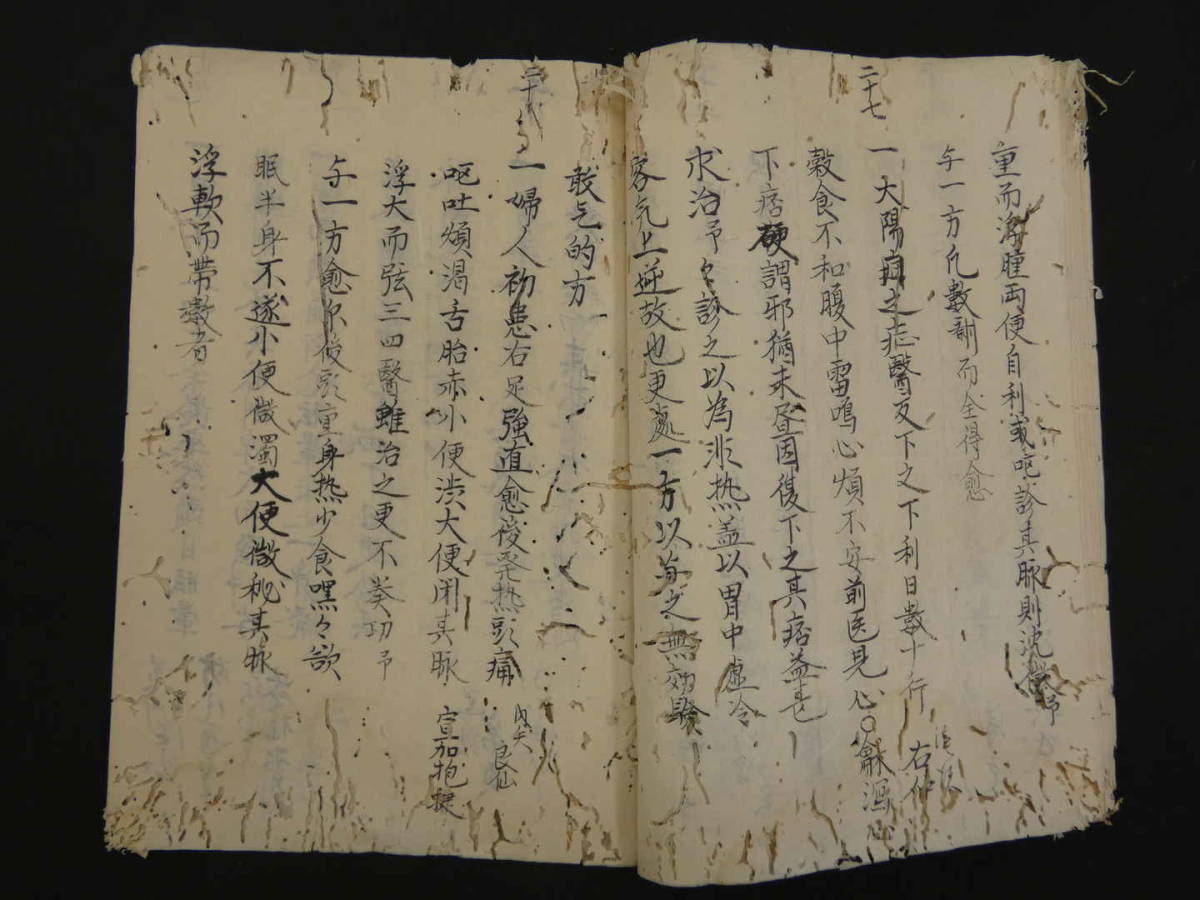 重而浮腫両便自利或吃診其脉則沈微予
与一方凢數劑而全得愈
二十七
一大陽病之症醫反下之下利日數十行
右件
穀食不和腹中雷鳴心煩不安前医見心
下痞硬謂邪猶未尽因復下之其痞益甚
求治予々診之以為非热盖以胃中虚冷
客気上逆故也更處一方以与之無効
敢乞的方
一婦人初患右足強直愈後発热頭痛
良仙
呕吐煩渇舌胎赤小便渋大便閉其脉
浮大而弦三四醫雖治之更不奏功予
与一方愈尓後頭重身热少食嘿々欲
眠半身不遂小便微濁大便微秘其脉
浮軟而帯數者